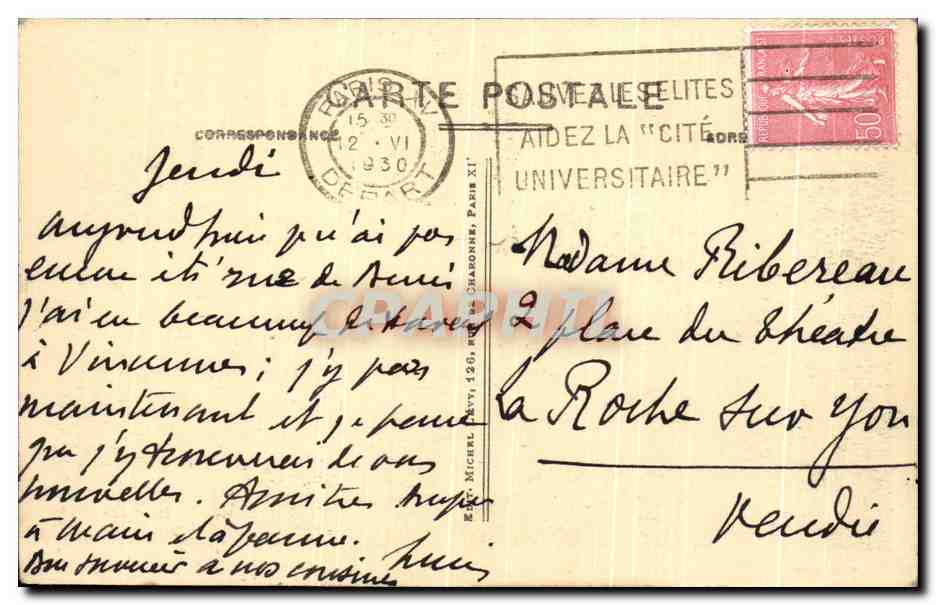 CARTE POSTALE
CORRESPONDANCE
ADRE
PARIS XV
15 30
12 · VI
1930
DEPART
SAUVEZ LES ELITES
AIDEZ LA "CITÉ
UNIVERSITAIRE"
REPUBLIQUE FRANÇAISE
POSTES
50
Jeudi
Aujourd'hui j'ai pas
encore été rue de
j'ai eu beaucoup de
à Vincennes ; j'y pars
maintenant et je pense
que j'y trouverai de vos
nouvelles. Amitiés
à Marie et à
Bon souvenir à nos cousines
EDIT. MICHEL LÉVY, 126, RUE DE CHARONNE, PARIS XIe
Madame Ribereau
2 place du théâtre
La Roche sur Yon
Vendée
CPAPHIL